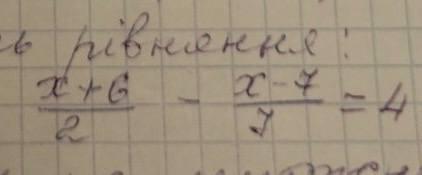 рівняння:
x+6/2 - x-7/7 = 4